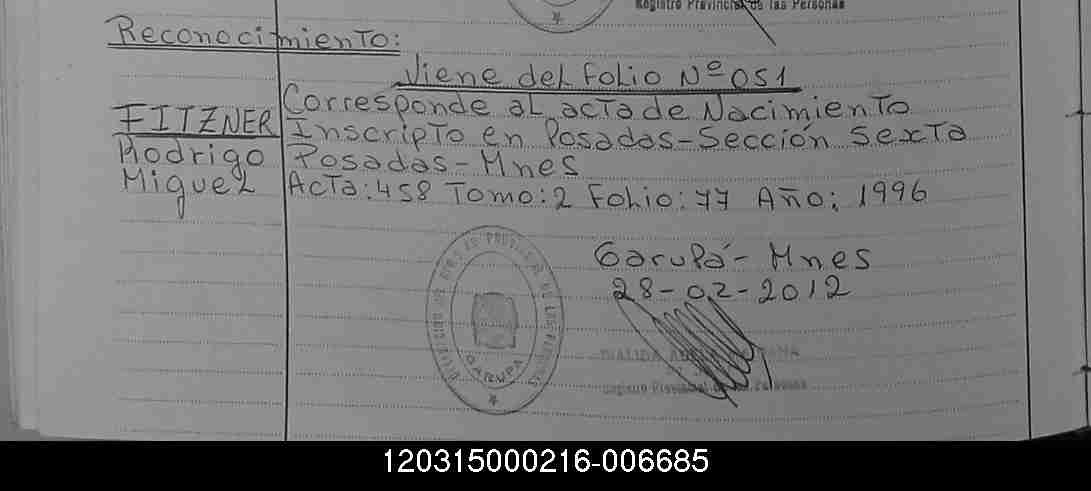 Registro Provincial de las Personas
Reconocimiento:
Viene del Folio Nº 051
Corresponde al acta de Nacimiento
FITZNER Inscripto en Posadas-Sección Sexta
Rodrigo Posadas-Mnes
Miguel Acta: 458 Tomo: 2 Folio: 77 Año: 1996
Garupá- Mnes
28-02-2012
GARUPA
Registro Provincial de las Personas
120315000216-006685